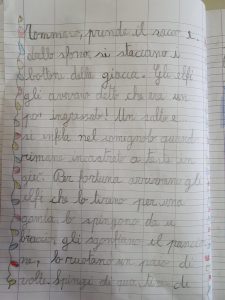 prende il sacco e
dallo sforzo si staccano i
bottoni della giacca. Gli elfi
gli avevano detto che era un
po' ingrassato! Un salto e
si infila nel comignolo quando
rimane incastrato
Per fortuna arrivano gli
elfi che lo tirano per una
lo spingono da un
braccio, gli sgonfiano il pancio
ne, lo ruotano un paio di
volte. Spingi di qua, tira di